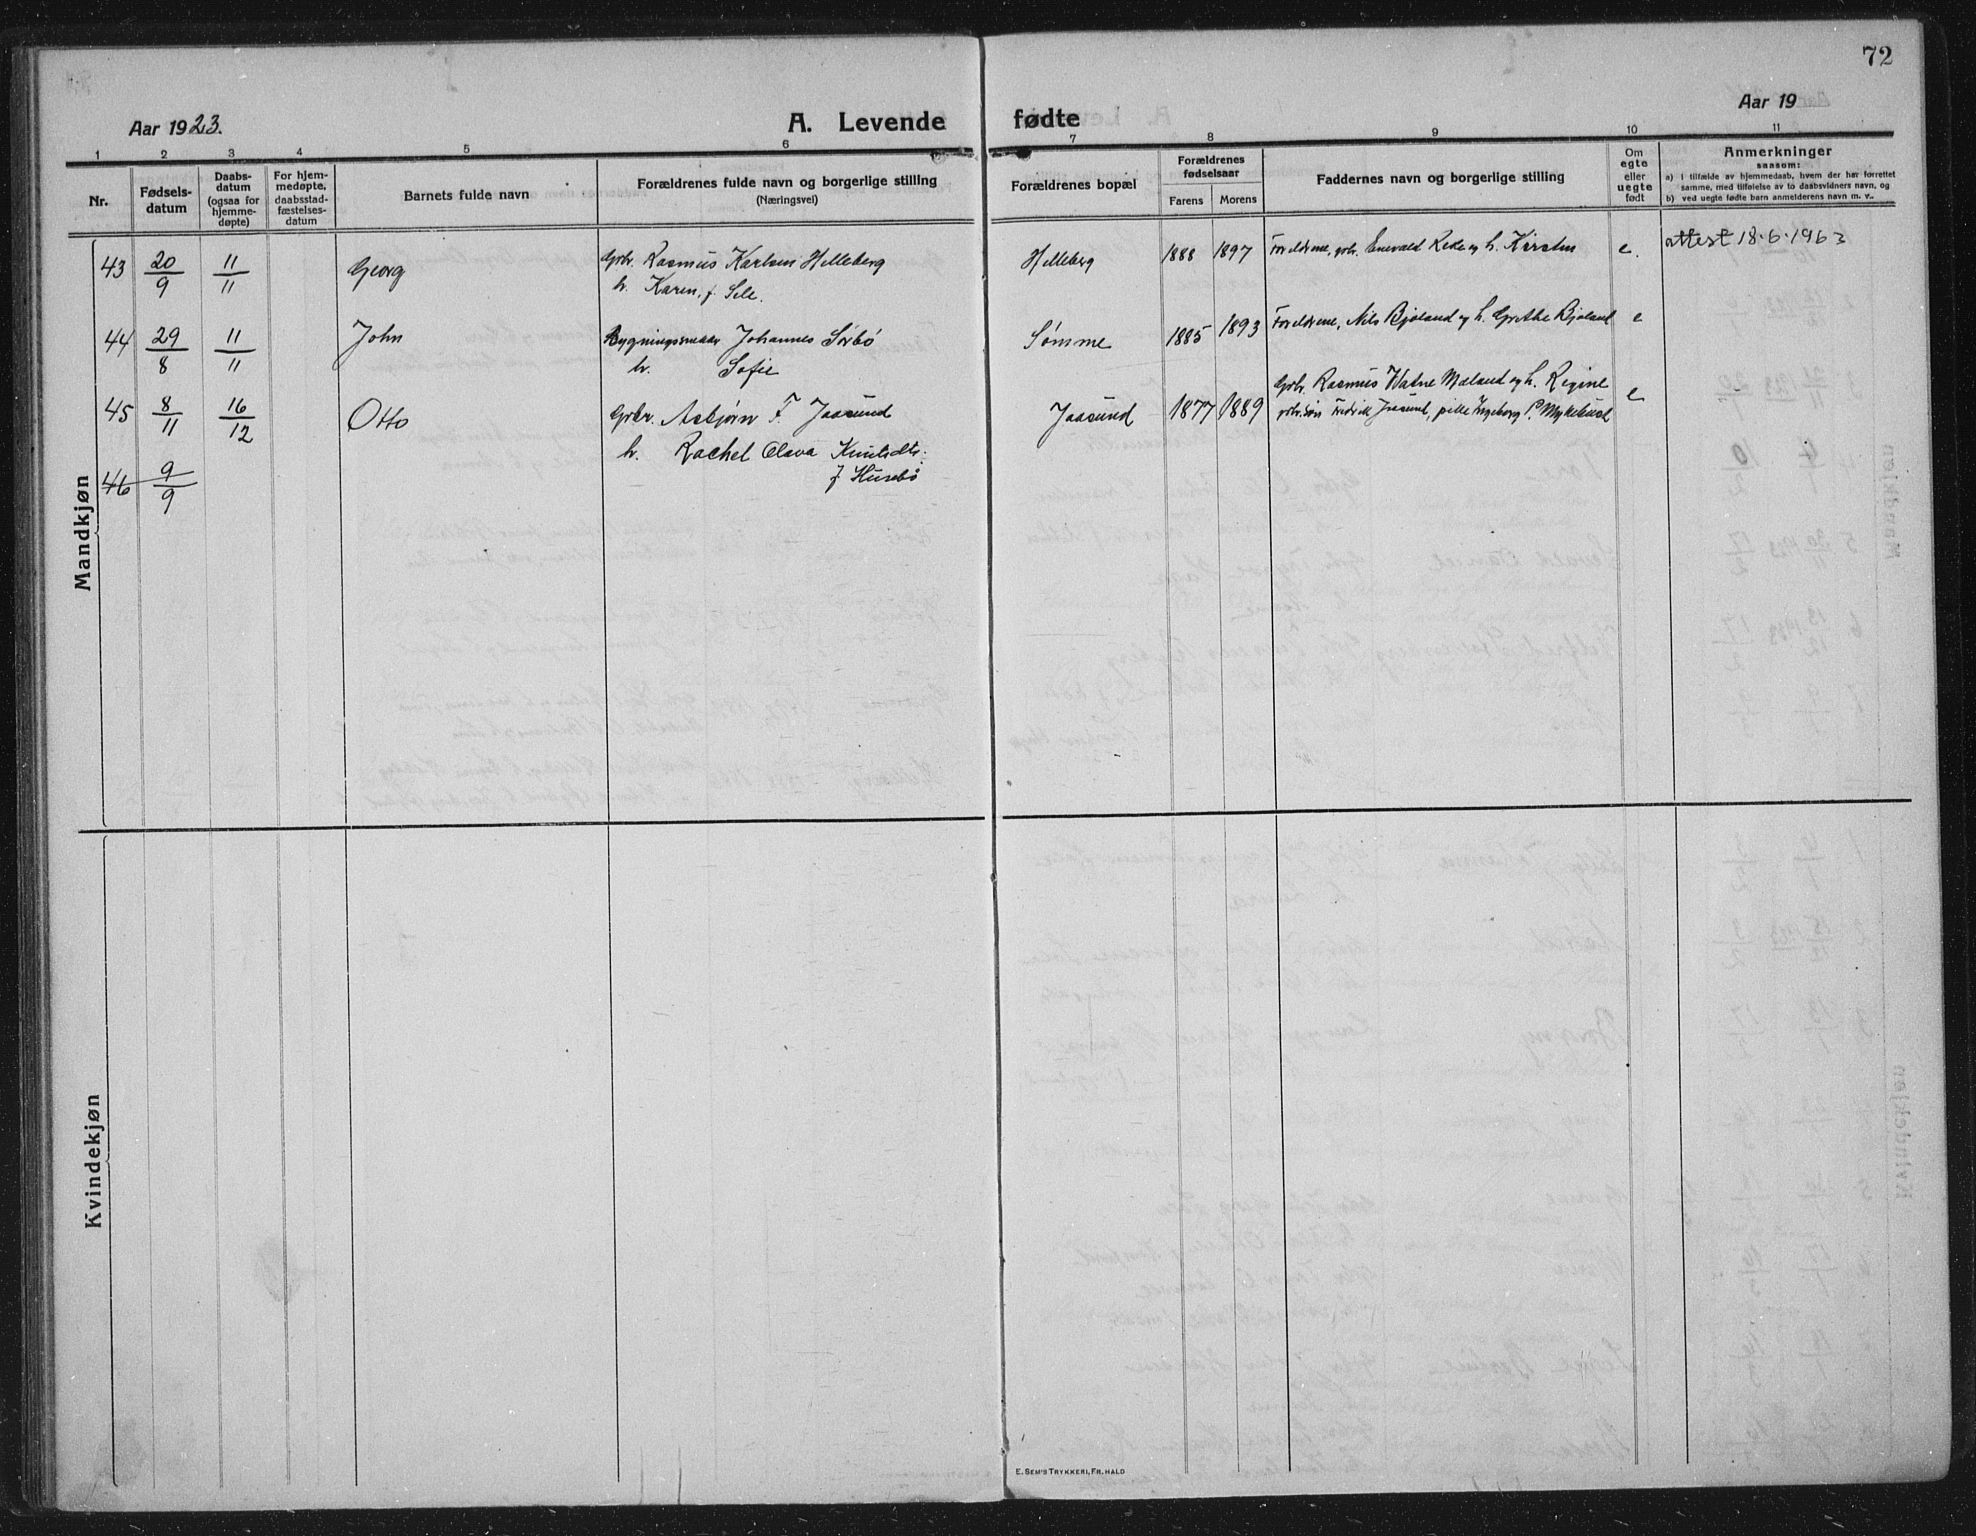 72
Aar 1923.
A. Levende fødte
Aar 19
1 2 3 4 5 6 7 8 9 10 11
Nr.
Fødsels-
datum
Daabs-
datum
(ogsaa for
hjemme-
døpte)
For hjem-
medøpte,
daabsstad-
fæstelses-
datum
Barnets fulde navn
Forældrenes fulde navn og borgerlige stilling
(Næringsvei)
Forældrenes bopæl
Forældrenes
fødselsaar
Farens Morens
Faddernes navn og borgerlige stilling
Om
egte
eller
uegte
født
Anmerkninger
saasom:
a) i tilfælde av hjemmedaab, hvem der har forrettet
samme, med tilføielse av to daabsvidners navn, og
b) ved uegte fødte barn anmelderens navn m. v..
Mandkjøn
43 20/9 11/11 Georg Gbr. Rasmus Karlsen Helleberg
h. Karen, f. Sele.
Helleberg 1888 1897 Foreldrene, gbr. Enevald Rede og h. Kirsten e. attest 18.6.1963
44 29/8 11/11 John Bygningssnekker Johannes Sørbø
h. Sofie
Sømme 1885 1893 Foreldrene, Nils Bjøland og h. Grethe Bjøland e
45 8/11 16/12 Otto Gbr. Asbjørn F. Jaasund
h. Rachel Olava Knutsdtr.
f Husebø
Jaasund 1877 1889 Gbr. Rasmus Watne Mæland og h. Regine
gbr.søn Fredrik Jaasund, pike Ingeborg P. Myklebust e
46 9/9
Kvindekjøn
E. SEM'S TRYKKERI, FR. HALD